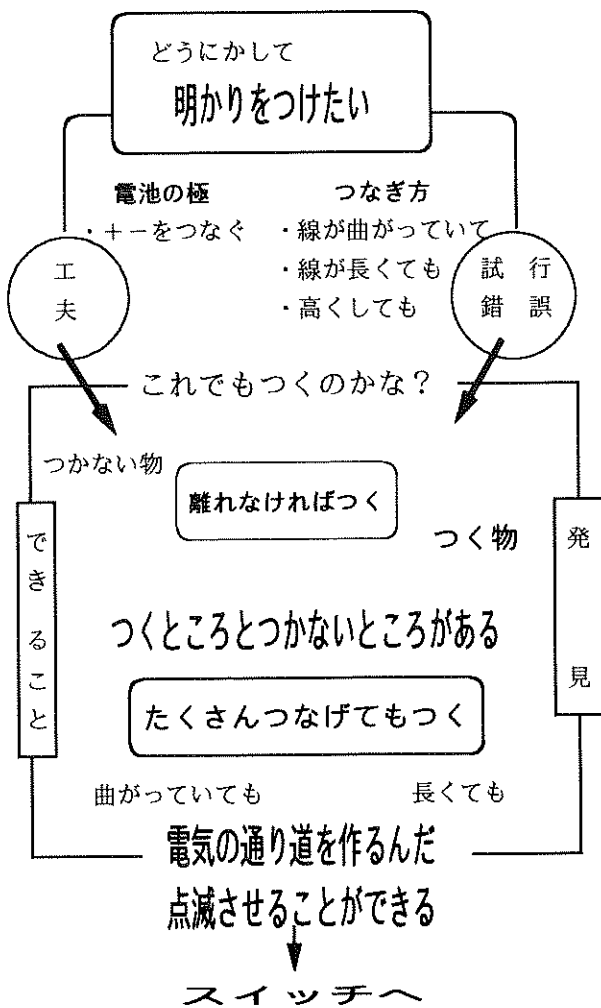 どうにかして
明かりをつけたい
電池の極
・+−をつなぐ
つなぎ方
・線が曲がっていて
・線が長くても
・高くしても
工夫
試行錯誤
これでもつくのかな?
つかない物
離れなければつく
つく物
できること
発見
つくところとつかないところがある
たくさんつなげてもつく
曲がっていても
長くても
電気の通り道を作るんだ
点滅させることができる
スイッチへ